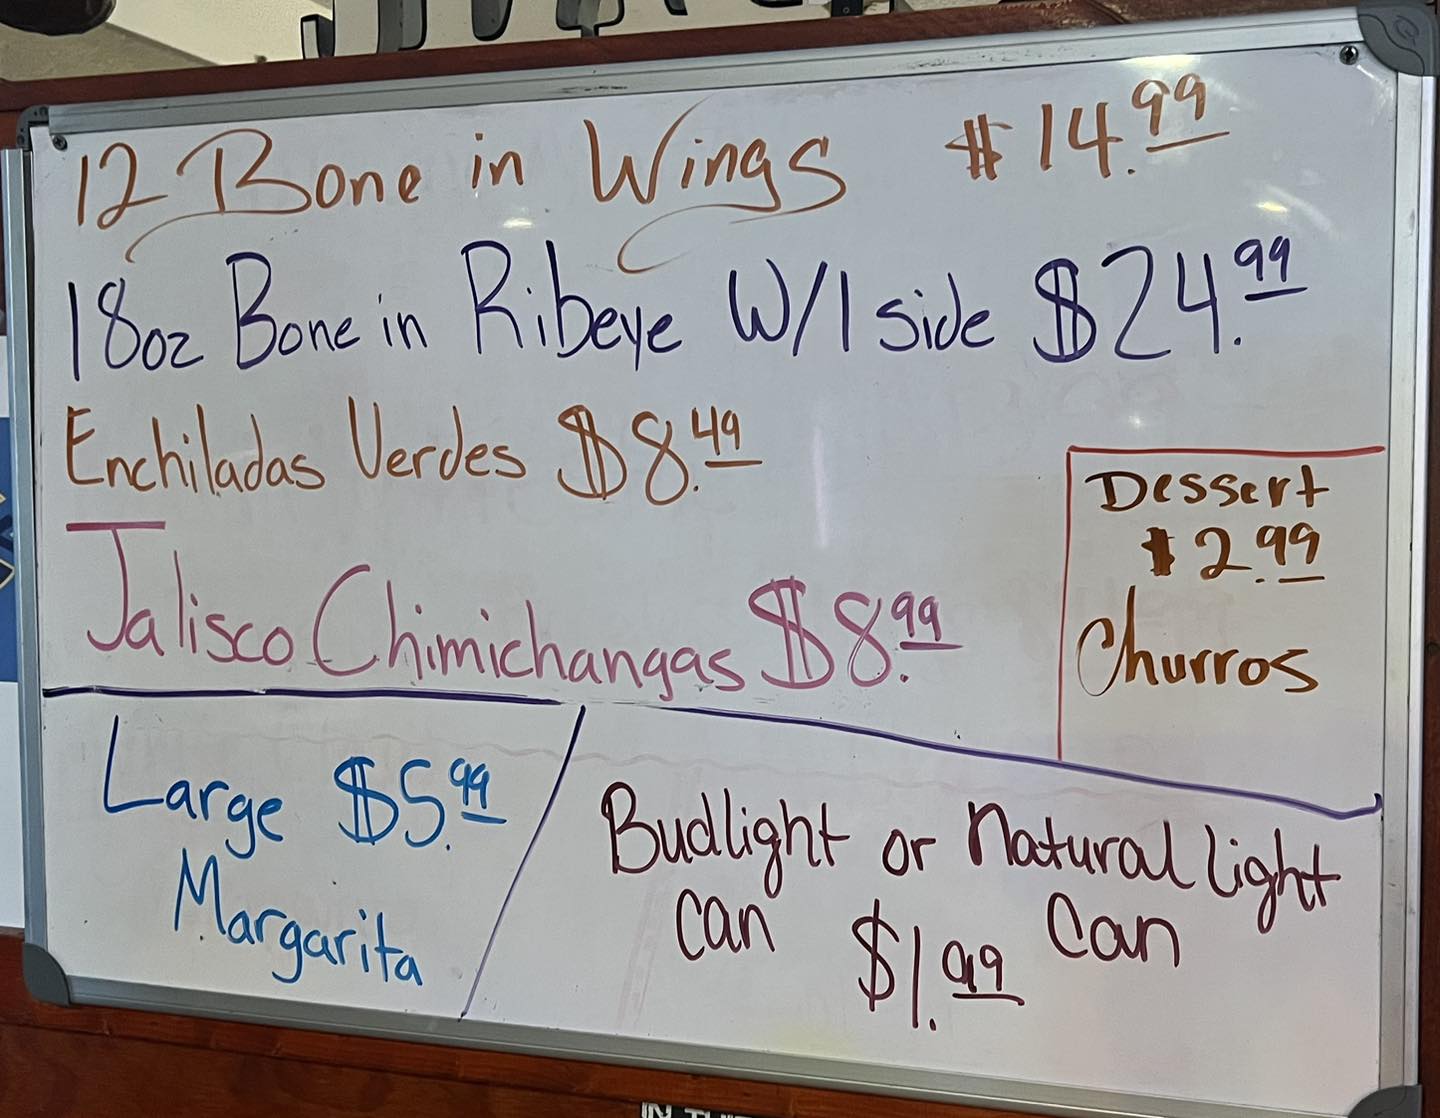 12 Bone in Wings $14.99
18oz Bone in Ribeye W/1 side $24.99
Enchiladas Verdes $8.49
Jalisco Chimichangas $8.99
Dessert
$2.99
Churros
Large $5.99
Margarita
Budlight or Natural Light
Can $1.99 Can